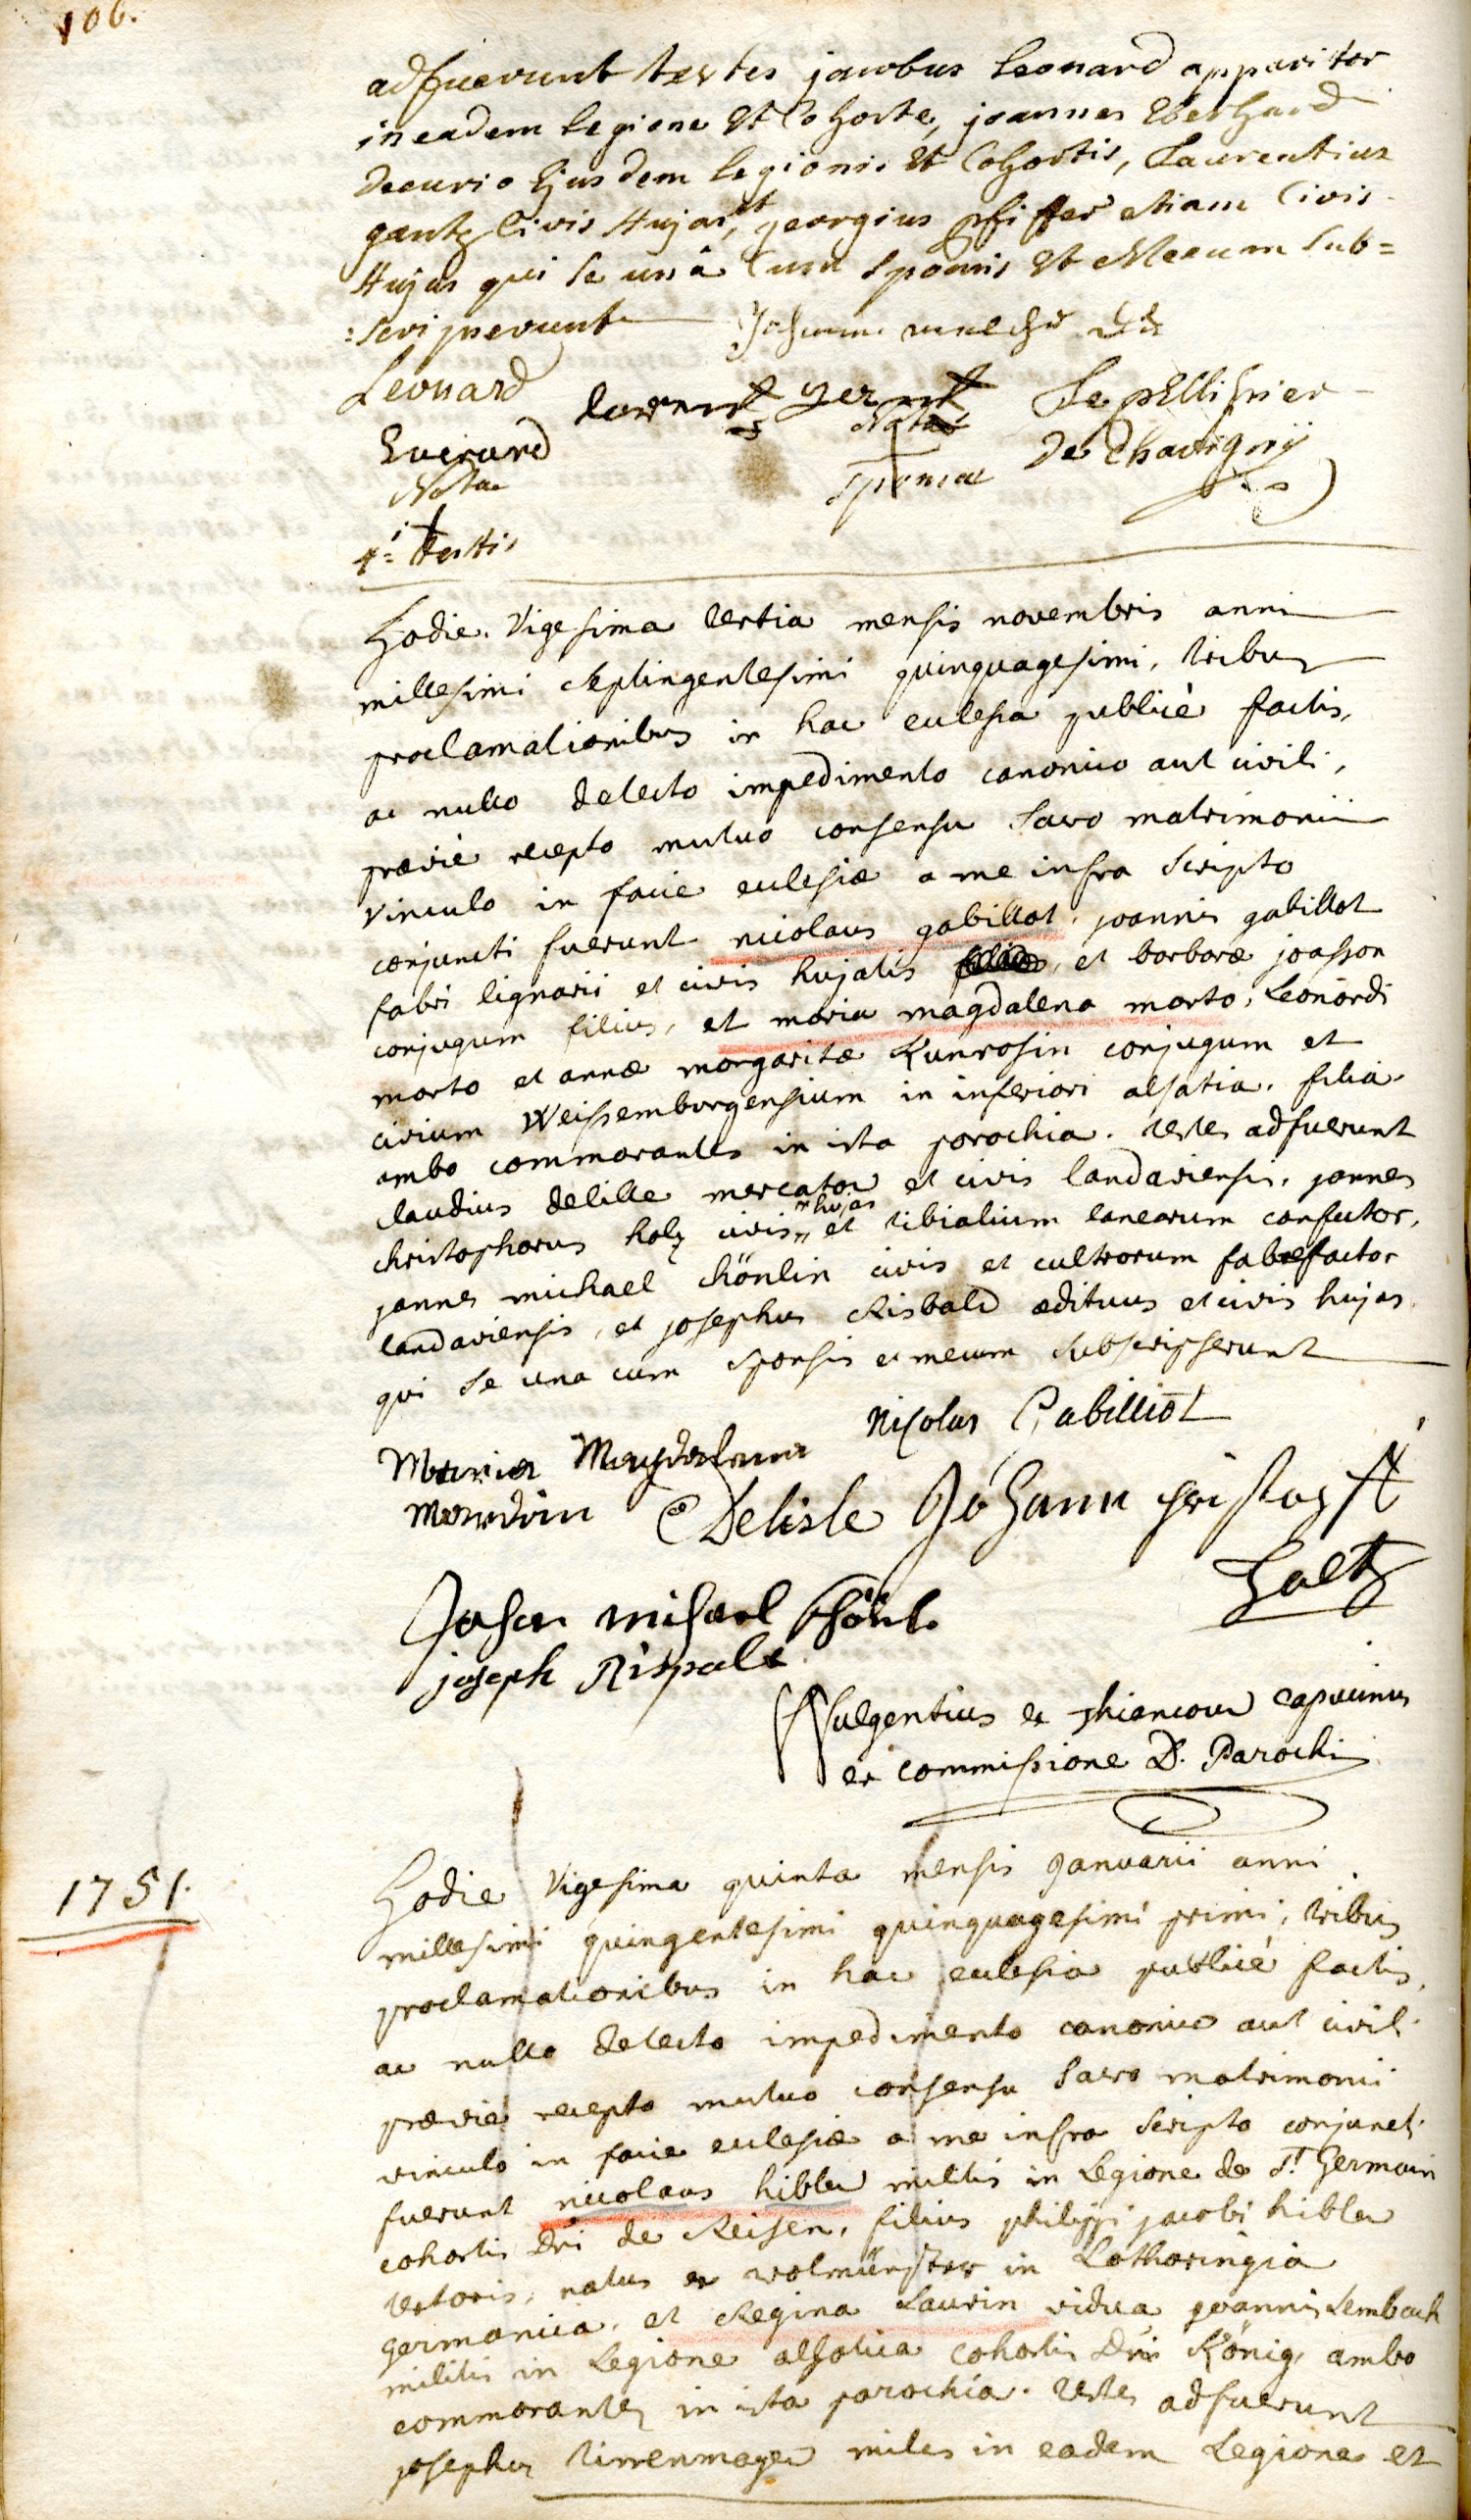 106.
adfuerunt testes jacobus Leonard apparitor
in eadem legione Et Cohorte, joannes Eberhard
Decurio Ejusdem legionis Et Cohortis, Laurentius
gantz Civis Hujas, et georgius pfiffer etiam Civis
Hujas qui se unà Cum Sponsis Et Mecum Sub=
=scripserunt Johann
Leonard
Le pElletier
De Chavigny
Everard
Nota
Nota
sponsae
4i testis
Hodie Vigesima tertia mensis novembris anni
millesimi septingentesimi quinquagesimi, tribus
proclamationibus in hac ecclesia publicè factis,
ac nullo detecto impedimento canonico aut civili,
prævie recepto mutuo consensu sacro matrimonii
vinculo in facie ecclesiæ a me infra scripto
conjuncti fuerunt nicolaus gabillot, joannis gabillot
fabri lignarii et civis hujatis, et barbaræ joasson
conjugum filius, et maria magdalena marto, Leonardi
marto et annæ margaritæ Kunrosin conjugum et
civium Weissemburgensium in inferiori alsatia, filia.
ambo commorantes in ista parochia. testes adfuerunt
claudius delille mercator et civis landaviensis, joannes
christophorus holz civis hujas et tibialium lanearum confector,
joannes michael chönlin civis et cultrorum fabrefactor
landaviensis, et josephus Risbald ædituus et civis hujas
qui se una cum sponsis et mecum subscripserunt
Nicolas Gabilliot
Maria Magdalena
Mardin
C Delisle Johann christoff
Holtz
Johan michael schönle
joseph Rispale
f fulgentius ex thiancour capucinus
ex commissione D. Parochi
1751.
Hodie Vigesima quinta mensis Januarii anni
millesimi quingentesimi quinquagesimi primi, tribus
proclamationibus in hac ecclesia publicè factis,
ac nullo detecto impedimento canonico aut civili
prævie recepto mutuo consensu sacro matrimonii
vinculo in facie ecclesiæ a me infra scripto conjuncti
fuerunt nicolaus hibler miles in Legione de St Germain
cohortis Dni de Reisen, filius philippi jacobi hibler
textoris, natus ex wolmünster in Lotharingia
germanica, et Regina Laurin vidua joannis Lembach
militis in Legione alsatica cohortis Dni König, ambo
commorantes in ista parochia. testes adfuerunt
josephus Zirrenmayer miles in eadem Legione et